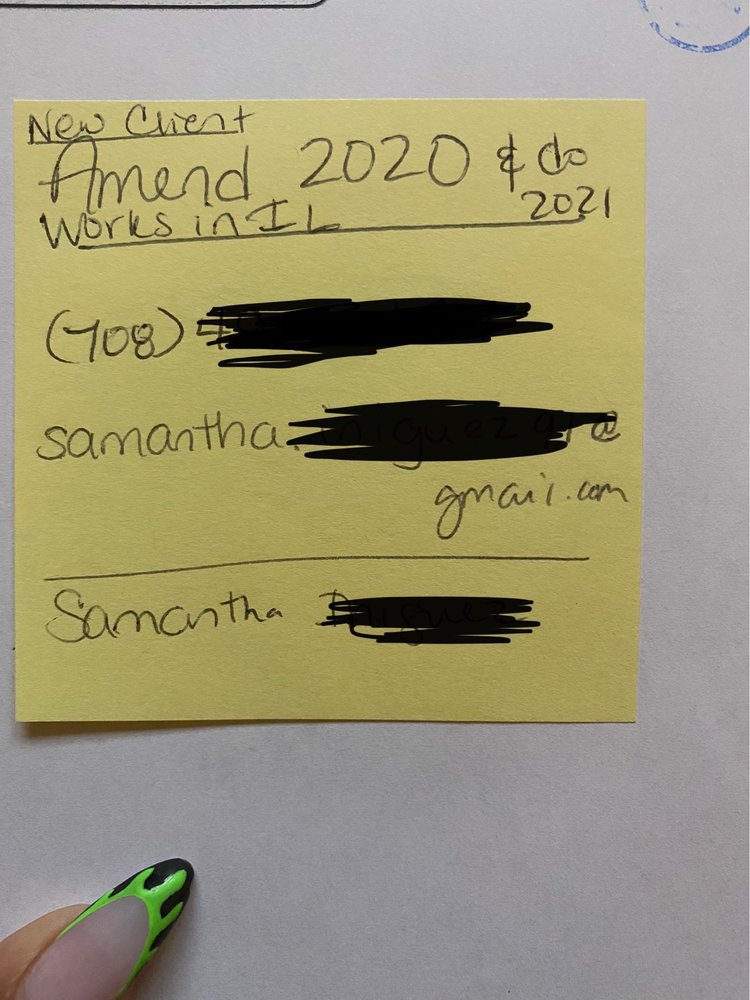 New Client
Amend 2020 & do
2021
Works in IL
(708)
samantha.
@
gmail.com
Samantha